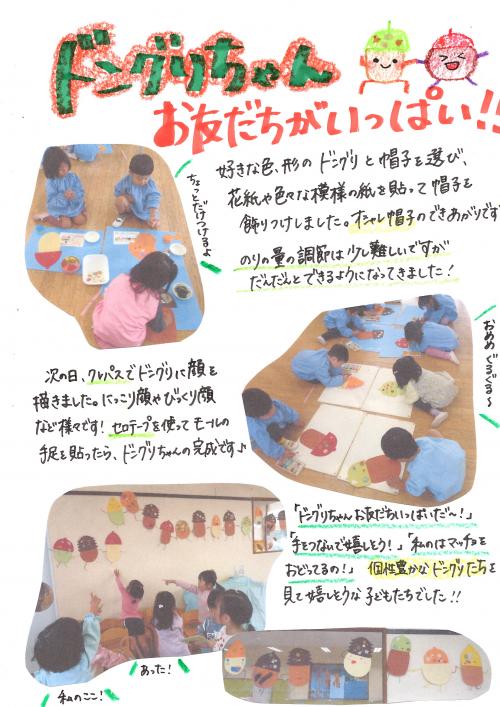 ドングリちゃん
お友だちがいっぱい!!
好きな色、形のドングリと帽子を選び、
花紙や色々な模様の紙を貼って帽子を
飾りつけしました。オシャレ帽子のできあがりです
のりの量の調節は少し難しいですが
だんだんとできるようになってきました!
ちょっとだけつけるよ
おめめぐるぐる〜
次の日、クレパスでドングリに顔を
描きました。にっこり顔やびっくり顔
など様々です!セロテープを使ってモールの
手足を貼ったら、ドングリちゃんの完成です♪
「ドングリちゃんお友だちいっぱいだ〜!」
「手をつないで嬉しそう!」「私のはマッチョを
おどってるの!」個性豊かなドングリたちを
見て嬉しそうな子どもたちでした!!
あった!
私のここ!